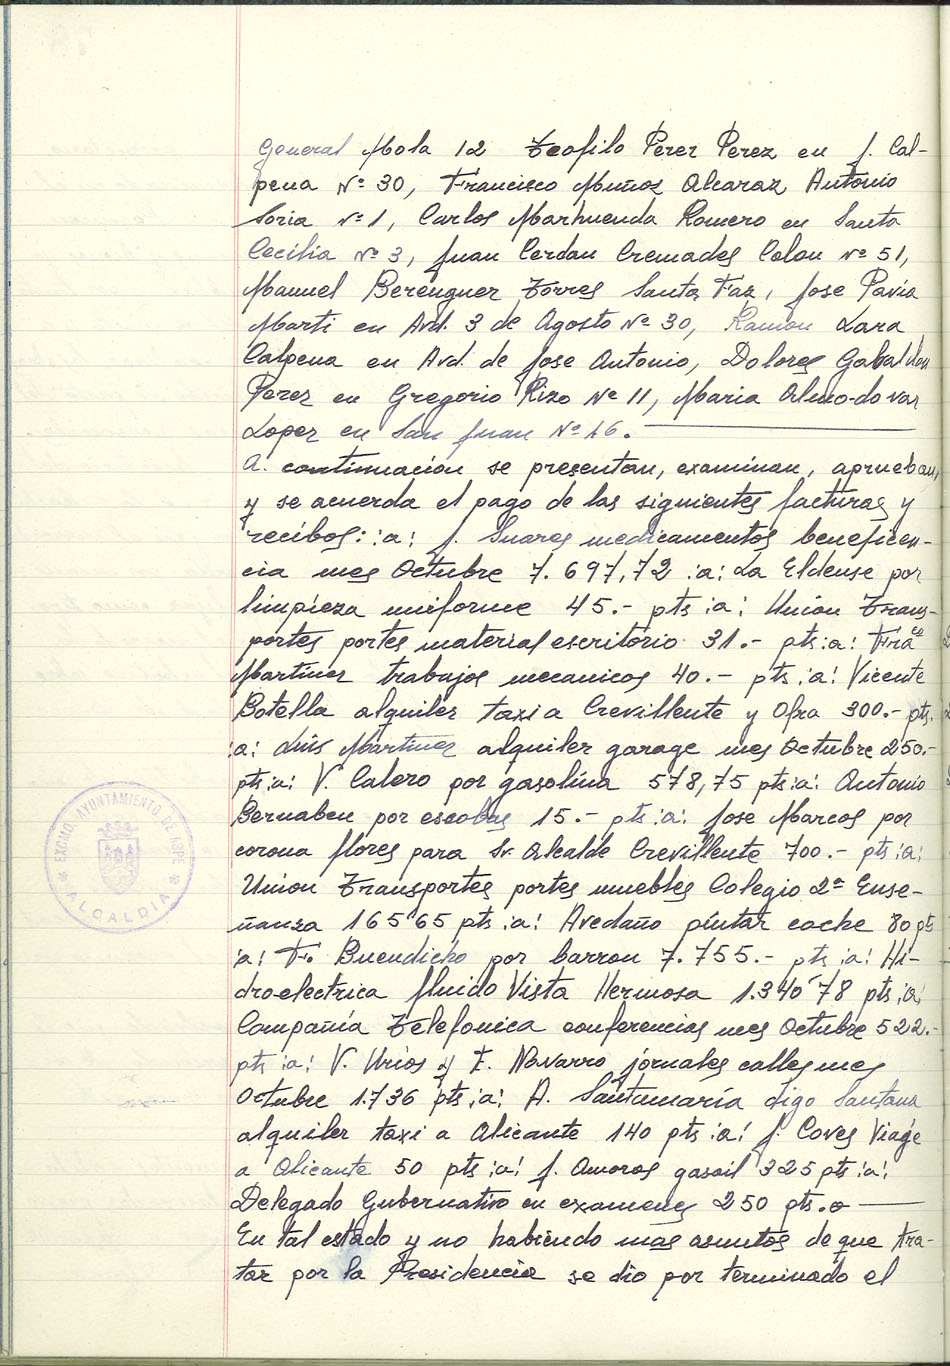 General Mola 12 Teofilo Perez Perez en J. Cal-
pena Nº 30, Francisco Muñoz Alcaraz Antonio
Soria Nº 1, Carlos Marhuenda Romero en Santa
Cecilia Nº 3, Juan Cerdan Cremades Colon Nº 51,
Manuel Berenguer Torres Santa Faz, Jose Pavia
Marti en Avd. 3 de Agosto Nº 30, Ramon Lara
Calpena en Avd. de Jose Antonio, Dolores Gabaldon
Perez en Gregorio Rizo Nº 11, Maria Almo-dovar
Lopez en San Juan Nº 46.
A. continuacion se presentan, examinan, aprueban,
y se acuerda el pago de las siguientes facturas y
recibos: :a: J. Suares medicamentos beneficen-
cia mes Octubre 7.697,72 :a: La Eldense por
limpieza uniforme 45.- pts :a: Union Trans-
portes portes material escritorio 31.- pts :a: Frᵃⁿ
Martinez trabajos mecanicos 40.- pts :a: Vicente
Botella alquiler taxi a Crevillente y Ofra 300.- pts.
:a: Luis Martinez alquiler garage mes Octubre 250.-
pts :a: V. Calero por gasolina 578,75 pts :a: Antonio
Bernabeu por escobas 15.- pts :a: Jose Marcos por
corona flores para Sr. Alcalde Crevillente 700.- pts :a:
Union Transportes portes muebles Colegio 2ª Ense-
ñanza 165'65 pts :a: Avedaño pintar coche 80 pts
:a: F. Buendicho por barron 7.755.- pts :a: Hi-
droelectrica fluido Vista Hermosa 1.340'78 pts :a:
Compañia Telefonica conferencias mes Octubre 522.-
pts :a: V. Urios y F. Navarro jornales calles mes
Octubre 1.736 pts :a: A. Santamaría digo Santana
alquiler taxi a Alicante 140 pts :a: J. Coves Viage
a Alicante 50 pts :a: J. Amoros gasoil 325 pts :a:
Delegado Gubernativo en examenes 250 pts.
En tal estado y no habiendo mas asuntos de que tra-
tar por la Presidencia se dio por terminado el
EXCMO. AYUNTAMIENTO DE ASPE
* ALCALDIA *